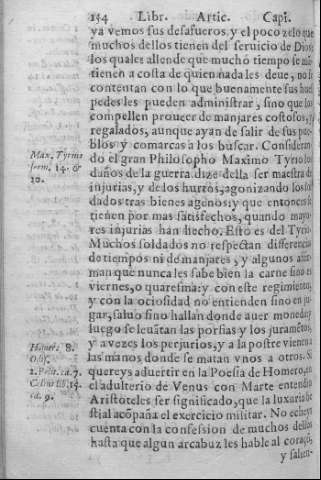 154 Libr. Artic. Capi.
ya vemos sus desafueros, y el poco zelo que
muchos dellos tienen del seruicio de Dios
los quales allende que mucho tiempo se
tienen a costa de quien nada les deue, no
contentan con lo que buenamente sus
pedes les pueden administrar, sino que los
compellen prouer de manjares costosos, y
regalados, aunque ayan de salir de sus
blos y comarcas a los buscar. Consideran
do el gran Philosopho Maximo Tyrio los
daños de la guerra dize della ser maestra de
injurias, y de los hurtos, agonizando los
dados tras bienes agenos: y que entonces se
tienen por mas satisfechos, quando mayo
res injurias han hecho. Esto es del Tyrio
Muchos soldados no respectan differencia
de tiempos ni de manjares, y algunos
man que nunca les sabe bien la carne sino en
viernes, o quaresma: y con este regimiento,
y con la ociosidad no entienden sino en ju
gar, saluo sino hallan donde auer moneda y
luego se leuãtan las porfias y los juramẽtos,
y a vezes los perjurios, y a la postre vienen a
las manos donde se matan vnos a otros. Si
quereys aduertir en la Poesia de Homero, en
el adulterio de Venus con Marte entendio
Aristoteles ser significado, que la luxuria be
stial acõpaña el exercicio militar. No echeys
cuenta con la confession de muchos dellos
hasta que algun arcabuz les hable al coraçõ,
y salien-
Max. Tyrius
serm. 14. &
20.
Homer. 8.
Odis.
2. Polit. ca. 7.
Celius lib. 14.
ca. 9.